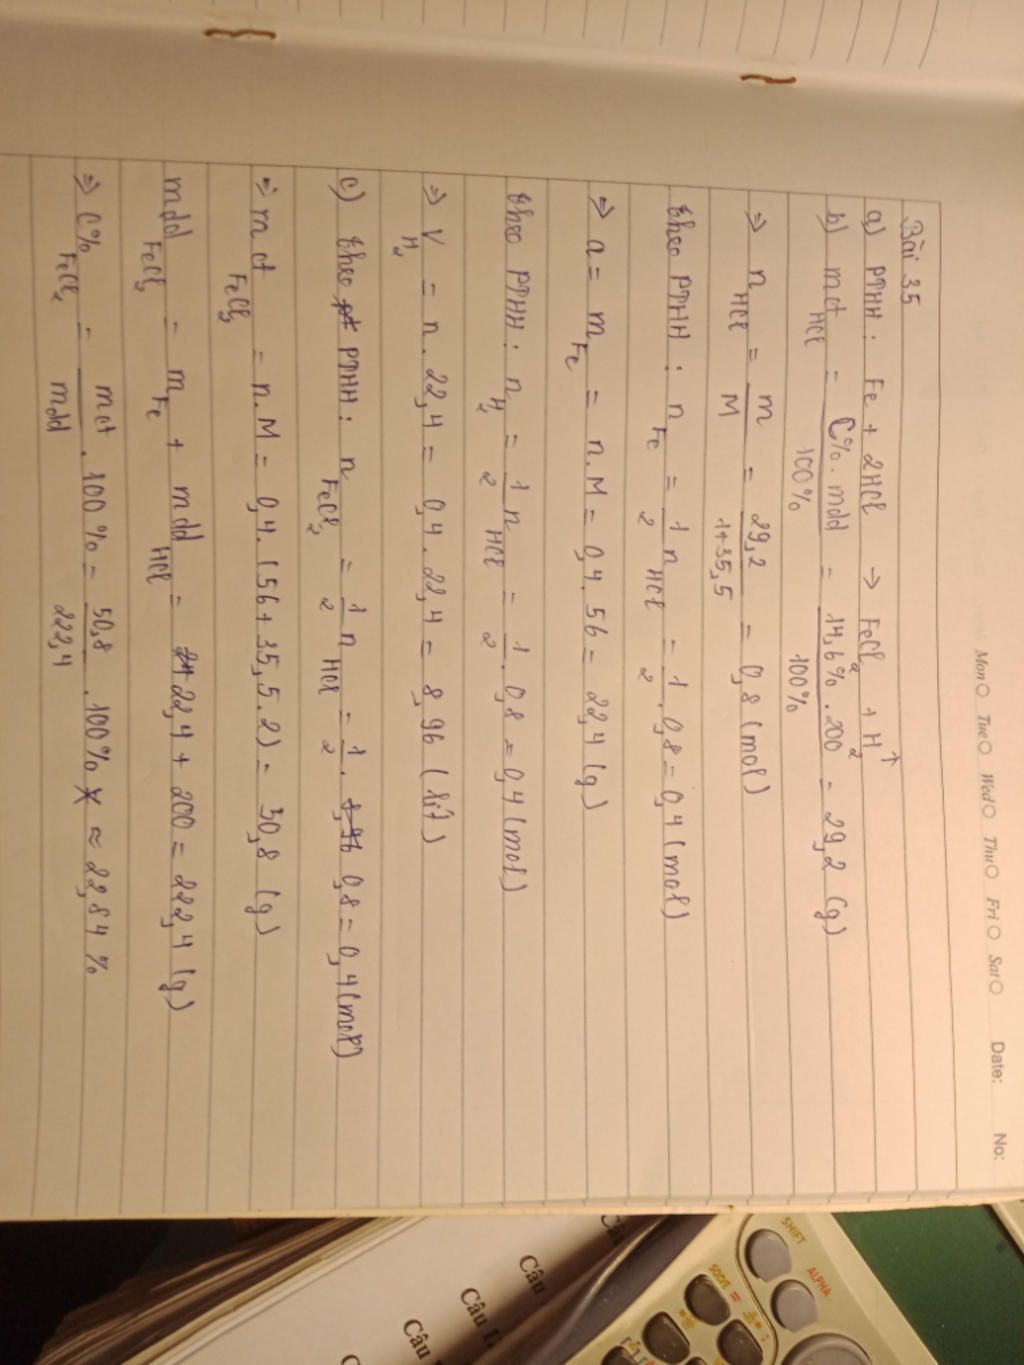 Mon Tue Wed Thu Fri Sat Date: No:
Bài 35
a) PTHH: Fe + 2HCl → FeCl2 + H2↑
b) mct HCl = C%.mdd / 100% = 14,6%.200 / 100% = 29,2 (g)
⇒ nHCl = m / M = 29,2 / 1+35,5 = 0,8 (mol)
theo PTHH: nFe = 1/2 nHCl = 1/2 . 0,8 = 0,4 (mol)
⇒ a = mFe = n.M = 0,4.56 = 22,4 (g)
theo PTHH: nH2 = 1/2 nHCl = 1/2 . 0,8 = 0,4 (mol)
⇒ VH2 = n.22,4 = 0,4.22,4 = 8,96 (lít)
c) theo PTHH: nFeCl2 = 1/2 nHCl = 1/2 . 0,8 = 0,4 (mol)
⇒ mct FeCl2 = n.M = 0,4.(56+35,5.2) = 50,8 (g)
mdd FeCl2 = mFe + mdd HCl = 22,4 + 200 = 222,4 (g)
⇒ C% FeCl2 = mct / mdd . 100% = 50,8 / 222,4 . 100% ≈ 22,84%
SHIFT
ALPHA
Câu
Câu
Câu